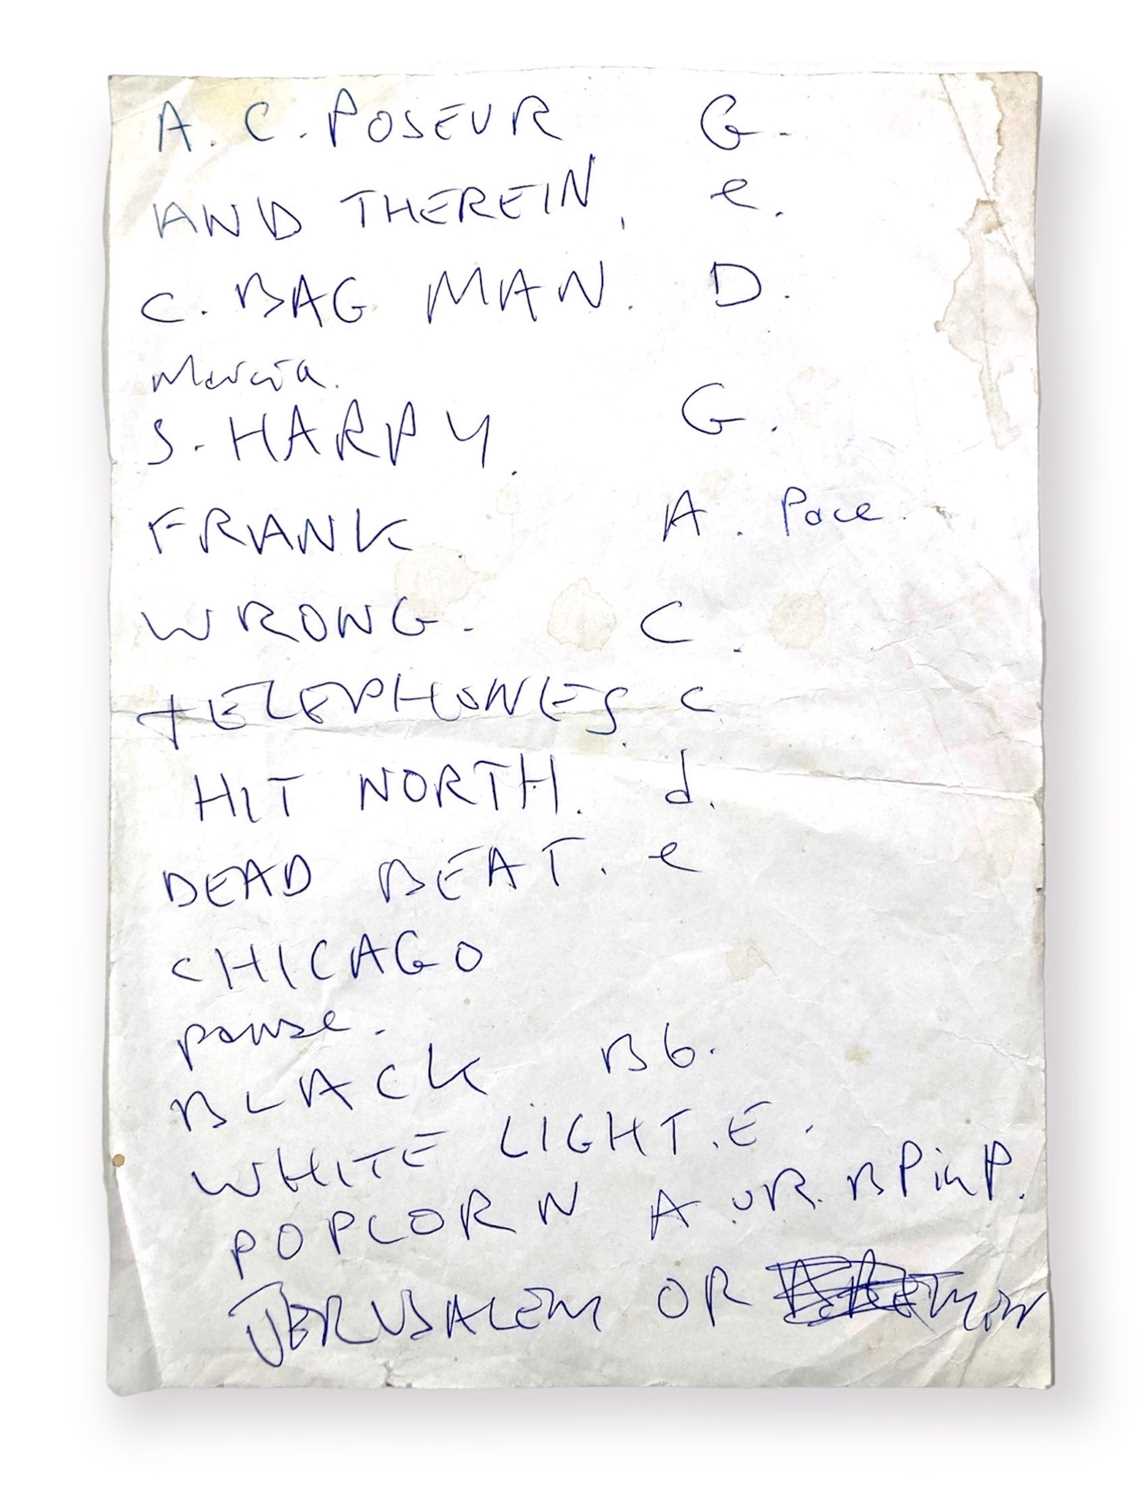 A. C. POSEUR G.
AND THEREIN. e.
C. BAG MAN. D.
Marcia.
S. HARPY. G.
FRANK A. Pace.
WRONG. C.
TELEPHONES. C.
HIT NORTH. d.
DEAD BEAT. e
CHICAGO
pause.
BLACK B6.
WHITE LIGHT. E.
POPCORN A. OR. B Pinp.
JERUSALEM OR